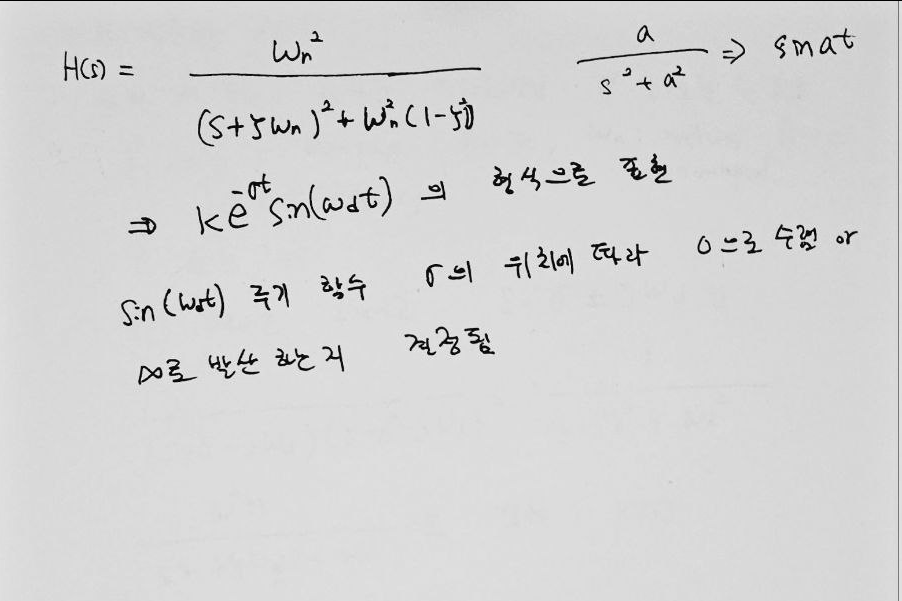 H(s) = ωn² / ((s+ζωn)² + ωn²(1-ζ²))    a / (s²+a²) ⇒ sin at
⇒ ke^-σt sin(ωdt) 의 형식으로 표현
sin(ωdt) 주기 함수 σ의 위치에 따라 0으로 수렴 or
∞로 발산 하는지 결정됨